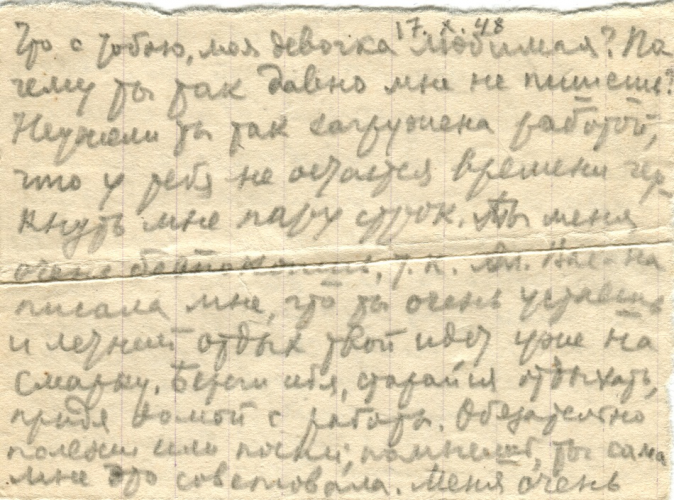 17.X.48
Что с тобою, моя девочка любимая? По
чему ты так давно мне не пишешь?
Неужели ты так загружена работой,
что у тебя не остается времени чер-
кнуть мне пару строк. Ты меня
очень беспокоишь, т.к. на-
писала мне, что ты очень устаешь
и летний отдых твой идет уже на
смарку. Береги себя, старайся отдыхать,
придя домой с работы. Обязательно
полежи или поспи; помнишь, ты сама
мне это советовала. Меня очень